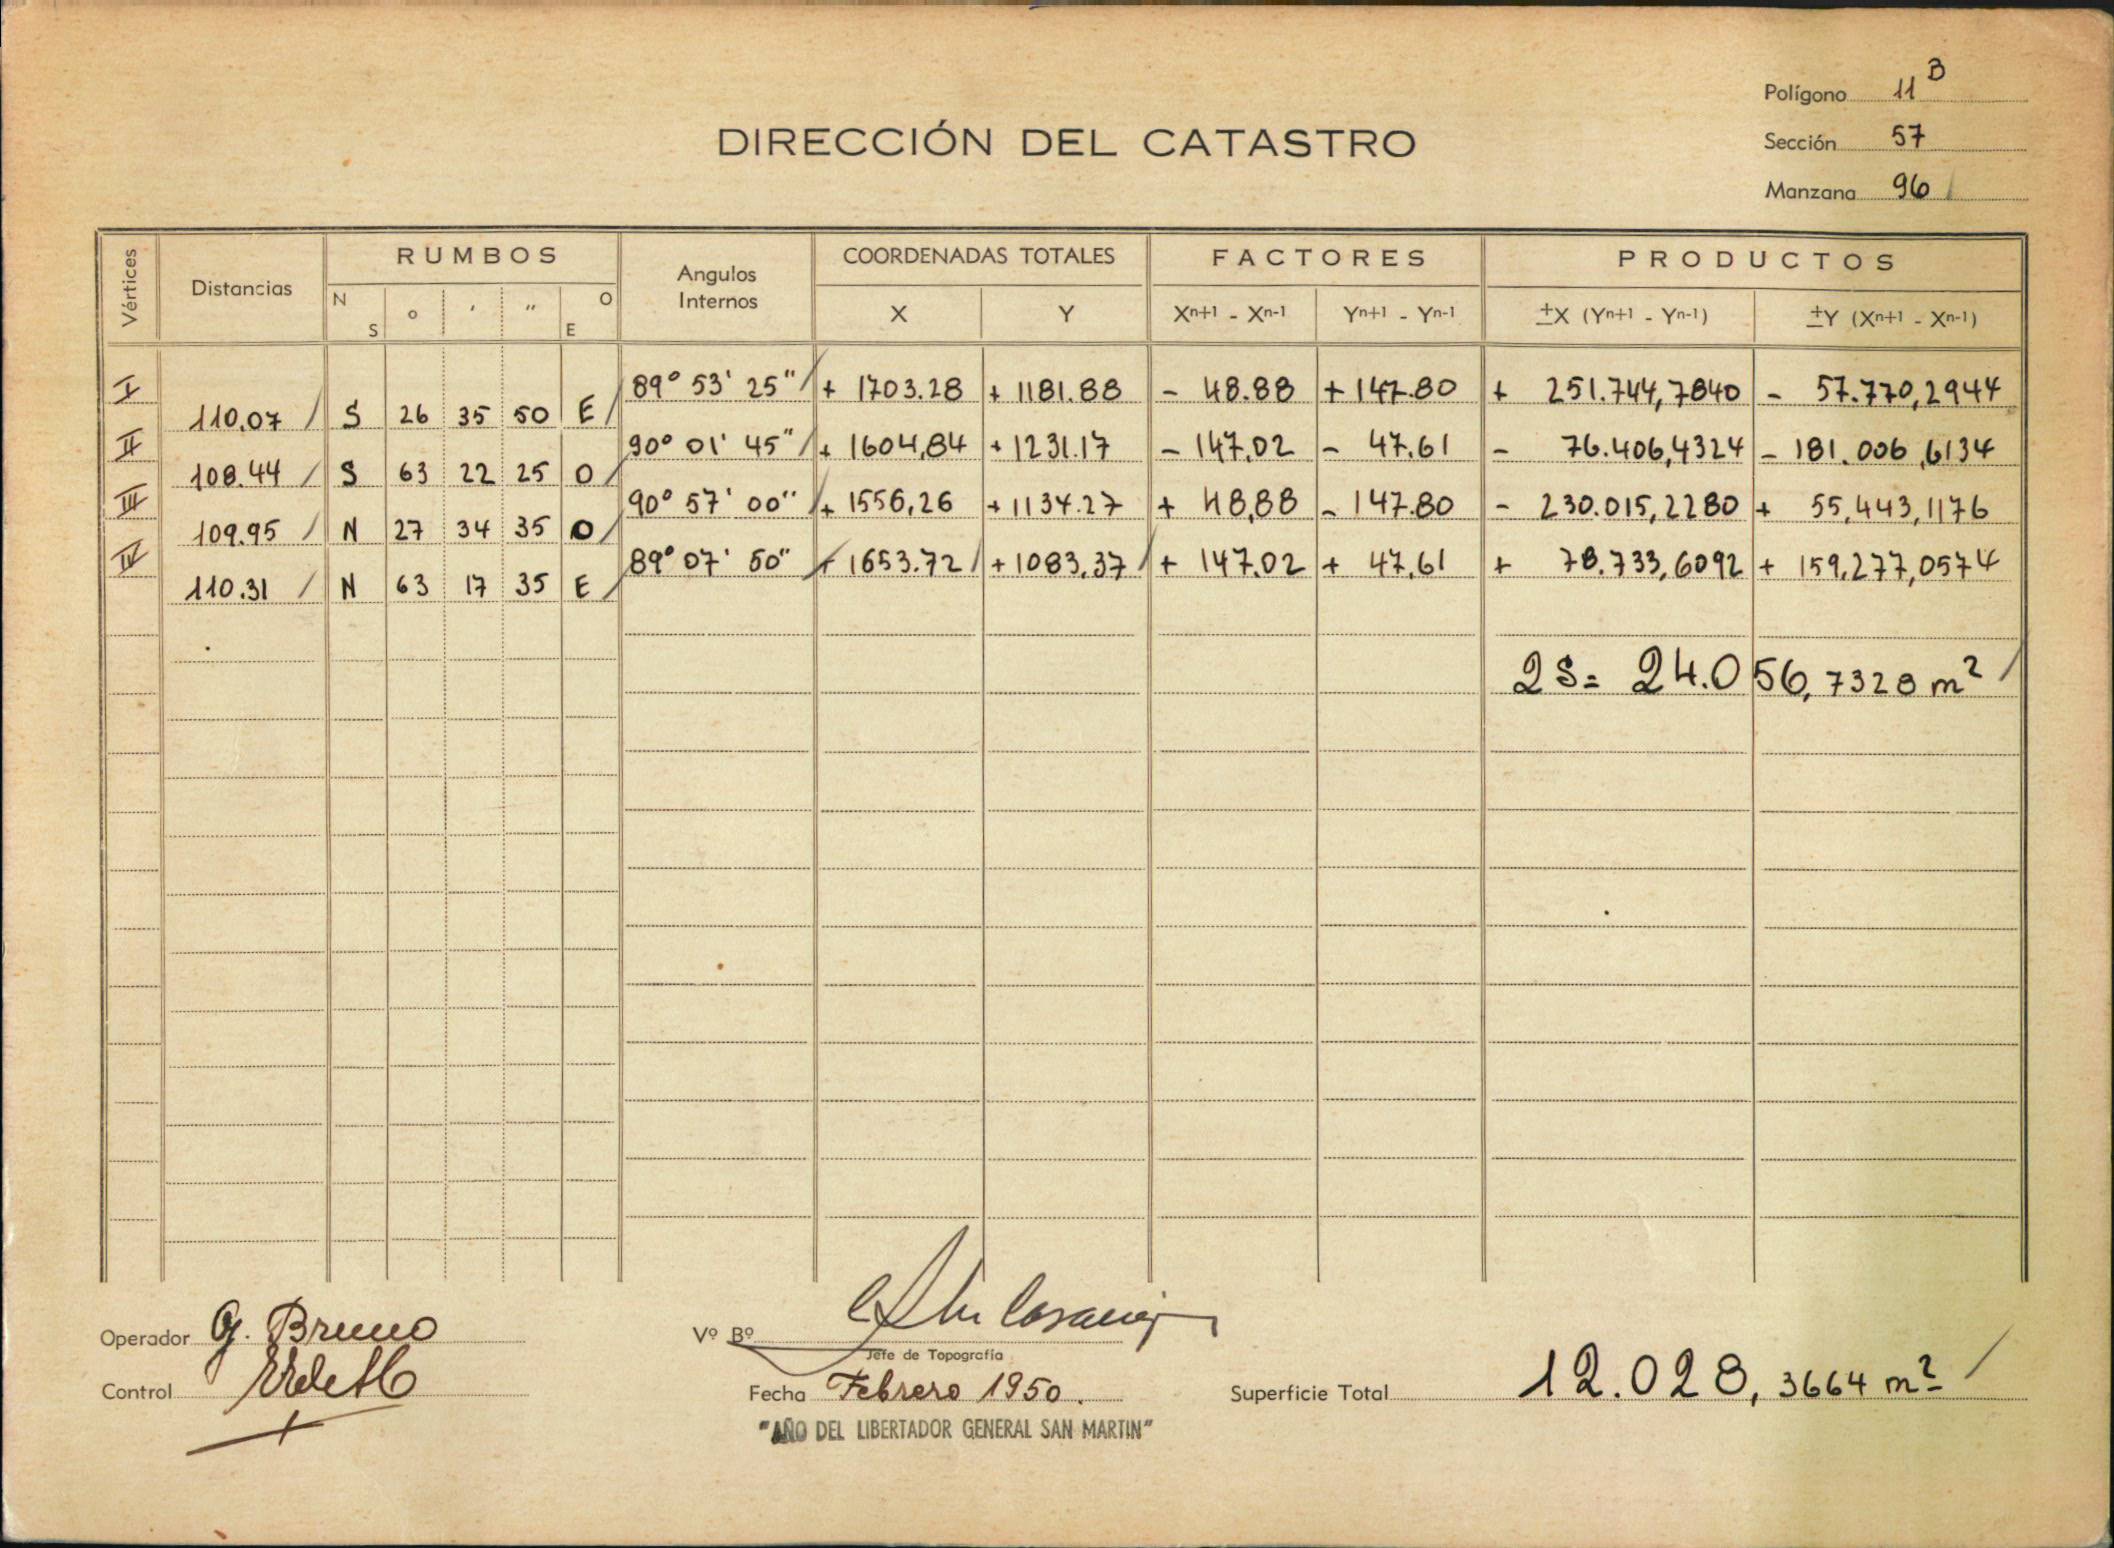 Polígono 11 B
DIRECCIÓN DEL CATASTRO
Sección 57
Manzana 96
Vértices Distancias RUMBOS Angulos Internos COORDENADAS TOTALES FACTORES PRODUCTOS
N S ° ' " O E X Y Xn+1 - Xn-1 Yn+1 - Yn-1 ±X (Yn+1 - Yn-1) ±Y (Xn+1 - Xn-1)
I 89° 53' 25" + 1703.28 + 1181.88 - 48.88 + 147.80 + 251.744,7840 - 57.770,2944
110,07 S 26 35 50 E
II 90° 01' 45" + 1604,84 + 1231.17 - 147,02 - 47,61 - 76.406,4324 - 181.006,6134
108.44 S 63 22 25 O
III 90° 57' 00" + 1556,26 + 1134.27 + 48,88 - 147.80 - 230.015,2280 + 55,443,1176
109.95 N 27 34 35 O
IV 89° 07' 50" + 1653.72 + 1083,37 + 147.02 + 47,61 + 78.733,6092 + 159,277,0574
110.31 N 63 17 35 E
2S= 24.056,7328 m²
Operador G. Bruno
Vº Bº
Jefe de Topografía
Control
Fecha Febrero 1950.
Superficie Total 12.028,3664 m²
"AÑO DEL LIBERTADOR GENERAL SAN MARTIN"